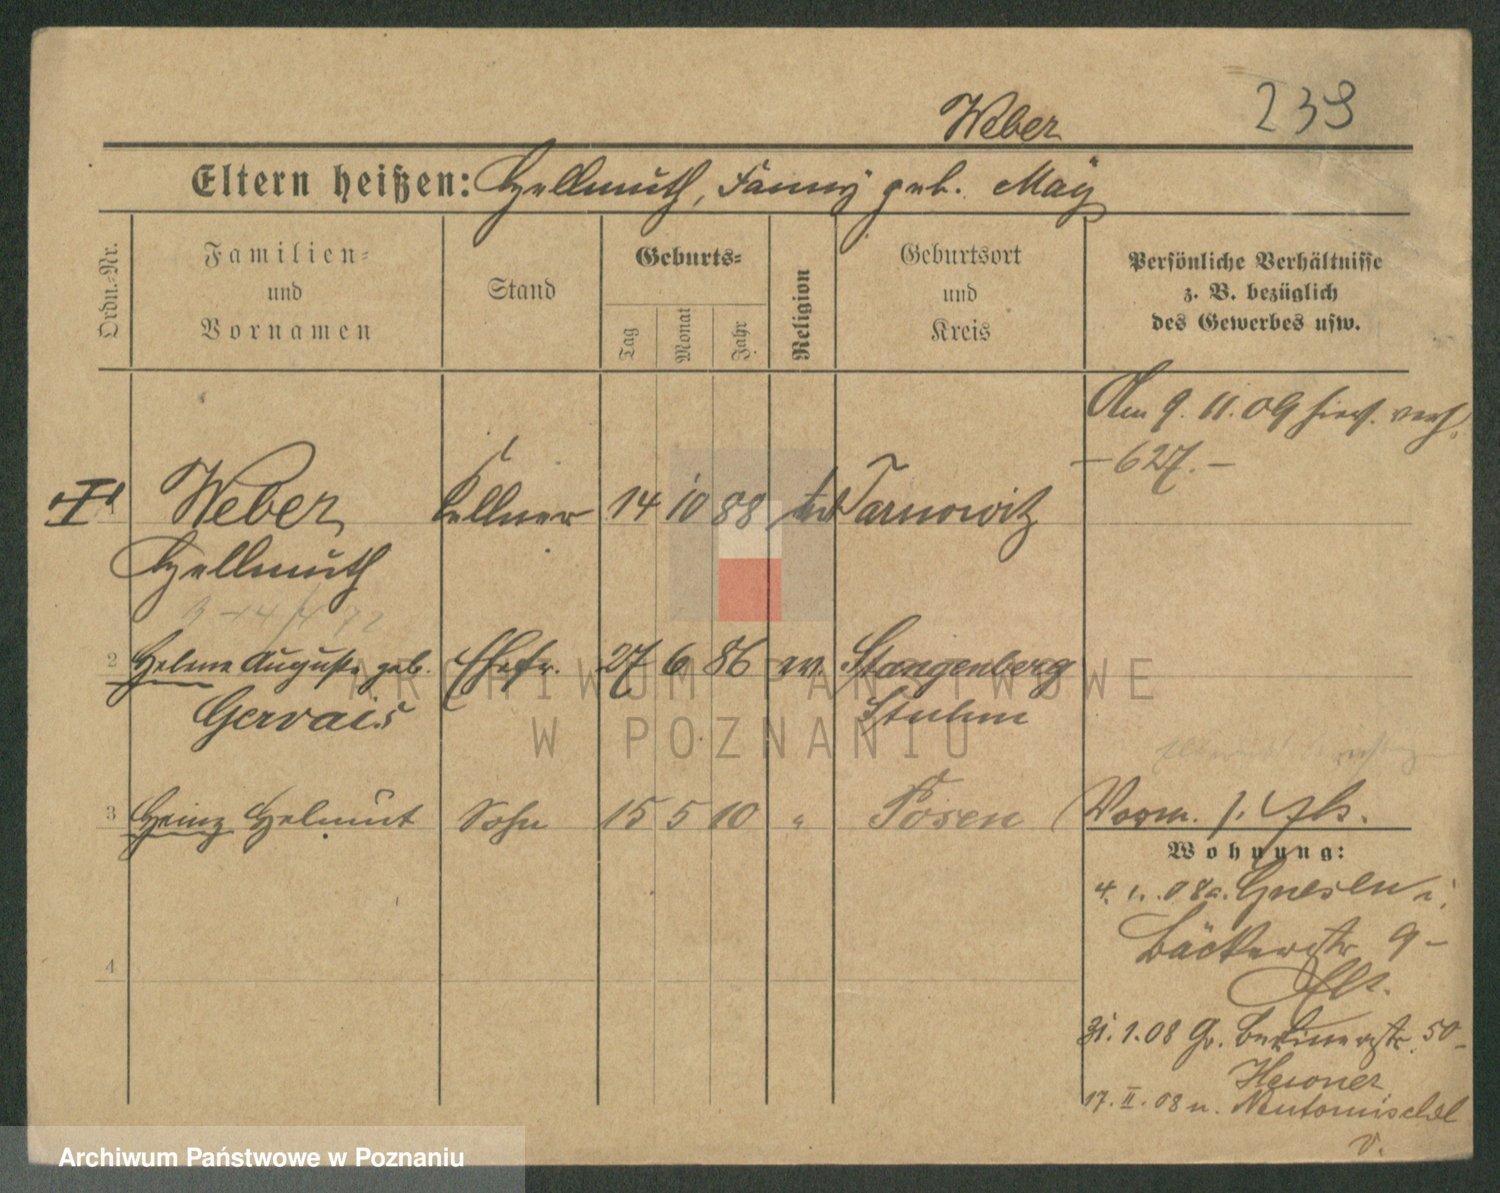 239
Weber
Eltern heißen: Hellmuth, Fanny geb. May
Ordn.-Nr.
Familien-
und
Vornamen
Stand
Geburts-
Tag
Monat
Jahr
Religion
Geburtsort
und
Kreis
Persönliche Verhältnisse
z. B. bezüglich
des Gewerbes usw.
Am 9. 11. 09 hier verh.
-627.-
I Weber Kellner 14 10 88 Tarnowitz
Hellmuth
2 Helene Auguste geb. Ehefr. 27 6 86 ev. Stangenberg
Gervais Stuhm
3 Heinz Helmut Sohn 15 5 10 " Posen
Vorm. s.
Wohnung:
4. 1. 08 Gnesen
Bäckerstr 9-
4
31. 1. 08 Gr. Berlinerstr. 50-
17. II. 08 n. Neutomischel
v.
ARCHIWUM PAŃSTWOWE
W POZNANIU
Archiwum Państwowe w Poznaniu